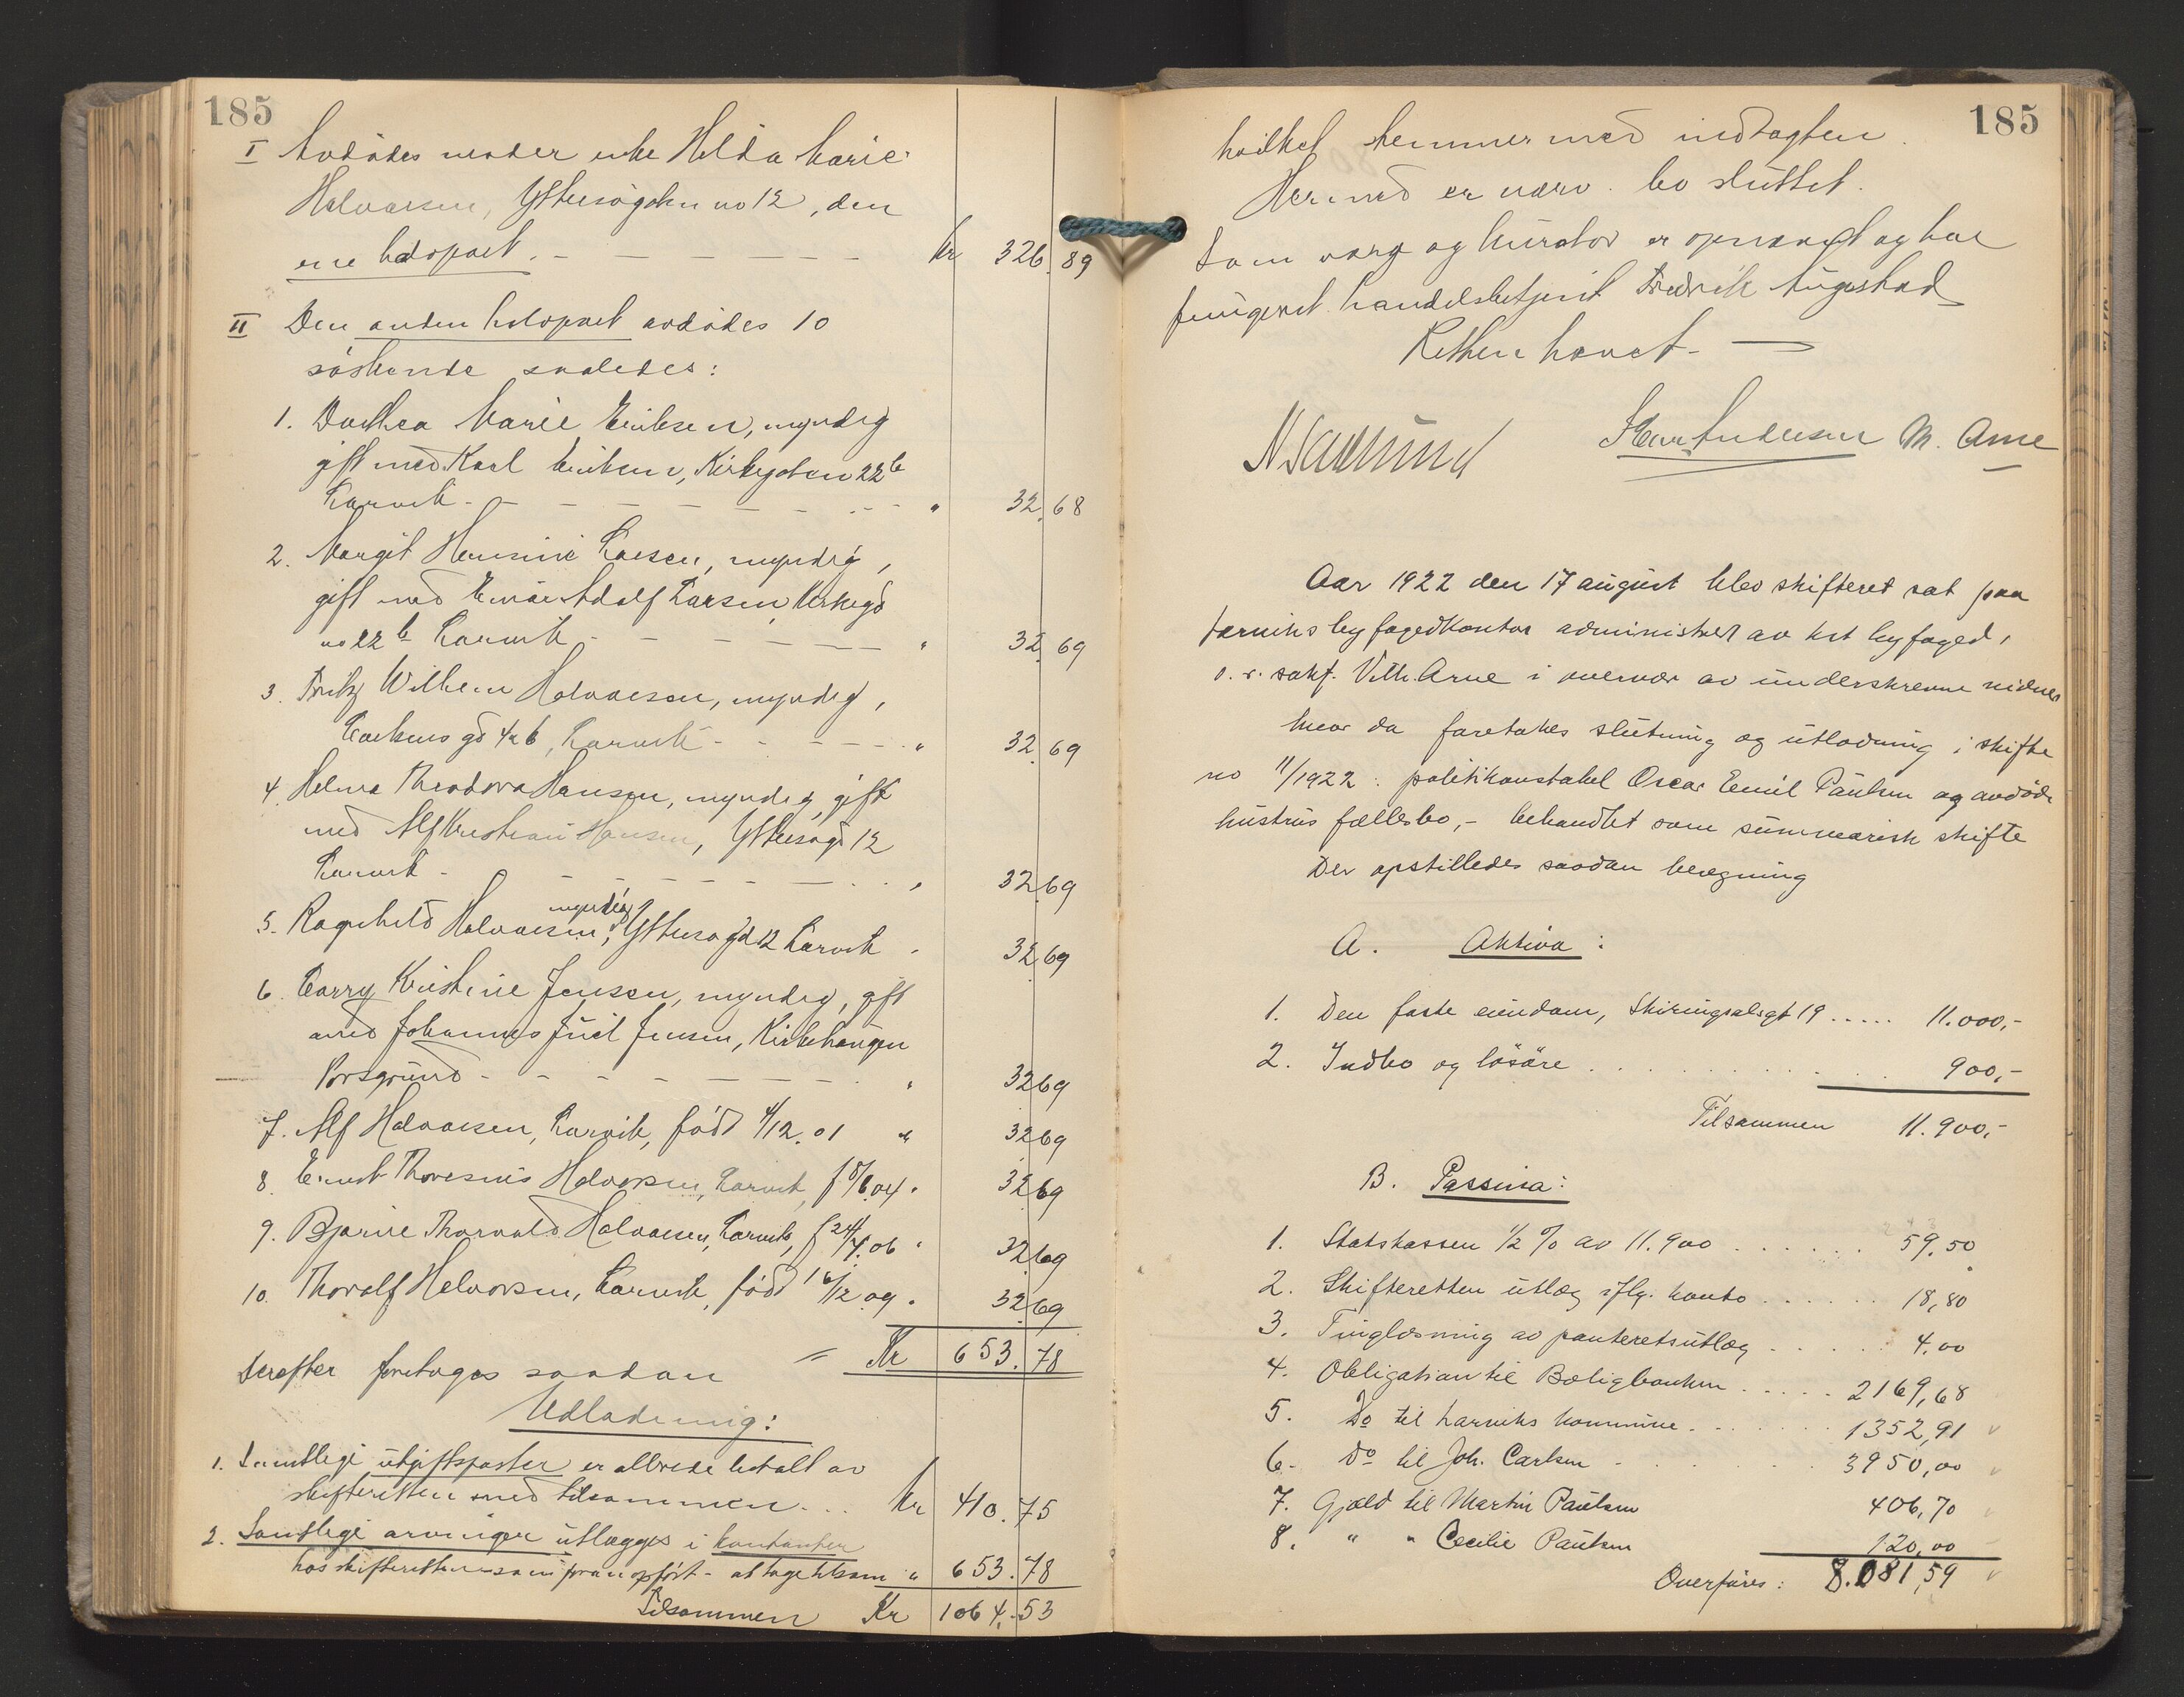 185
I Avdødes moder enke Hilda Marie
Halvorsen, Ystersøgaten no 12, den
ene halvpart. - - - - - - - Kr 326.89
II Den anden halvpart avdødes 10
søskende saaledes:
1. Dorthea Marie Eriksen, myndig
gift med Karl Eriksen, Kirkegaten 22b
Larvik - - - - - - - " 32.68
2. Margit Larsen, myndig,
gift med Einar Adolf Larsen Kirkegd
no 22b Larvik - - - - - " 32.69
3. Fritz Wilhem Halvorsen, myndig,
gd 4ab, Larvik - - - - - " 32.69
4. Helma Theodora Hansen, myndig, gift
med Alf Kristian Hansen, Ystersøgd 12
Larvik - - - - - - - " 32.69
5. Ragnhild Halvorsen, myndig, Ystersøgd 12 Larvik " 32.69
6. Carry Kristine Jensen, myndig, gift
med Johannes Juel Jensen, Kirkehaugen
Porsgrund - - - - - - - " 32.69
7. Alf Halvorsen, Larvik, född 4/12.01 " 32.69
8. Ernst Thoresius Halvorsen, Larvik, f 8/6.04 " 32.69
9. Bjarne Thorvald Halvorsen, Larvik, f 24/4.06 " 32.69
10. Thoralf Halvorsen, Larvik, född 16/12 09 " 32.69
= Kr 653.78
Derefter foretoges saadan
Udlodning:
1. Samtlige utgiftsposter er allerede betalt av
skifteretten med tilsammen... Kr 410.75
2. Samtlige arvinger utlægges i kontanter
hos skifteretten som foran opført - at tage tilsam " 653.78
Tilsammen Kr 1064.53
185
hvilket stemmer med indtægten.
Hermed er nærv. bo sluttet.
Som verge og kurator er opnævnt og har
fungeret handelsbetjent Fredrik Augestad
Retten hævet.
M. Arne
Aar 1922 den 17 august blev skifteret sat paa
Larviks byfogedkontor administrert av kst byfoged,
o.r. sakf. Vilh. Arne i overvær av underskrevne vidner
hvor da foretokes slutning og utlodning i skifte
no 11/1922: politikonstabel Oscar Emil Paulsen og avdøde
hustrus fællesbo, - behandlet som summarisk skifte
Der opstilledes saadan beregning
A. Aktiva:
1. Den faste eiendom, Skiringsalsgt 19 ..... 11.000,-
2. Indbo og løsøre . . . . . . . . 900,-
Tilsammen 11.900,-
B. Passiva:
1. Statskassen 1/2 % av 11.900 . . . . . . 59.50
2. Skifteretten utlæg iflg. konto . . . . . . 18,80
3. Tinglæsning av panteretsutlæg . . . . . 4.00
4. Obligation til Boligbanken ..... 2169,68
5. Do til Larviks kommune. . . . . . 1352,91
6. Do til Joh. Carlsen . . . . . 3950,00
7. Gjæld til Martin Paulsen 406,70
8. " " Cecilie Paulsen 120,00
Overføres: 8.081,59